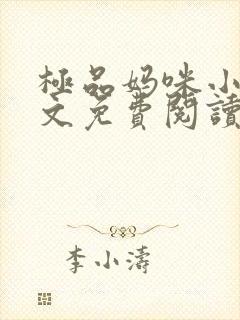 極品妈咪小
文免費閱讀
李小濤